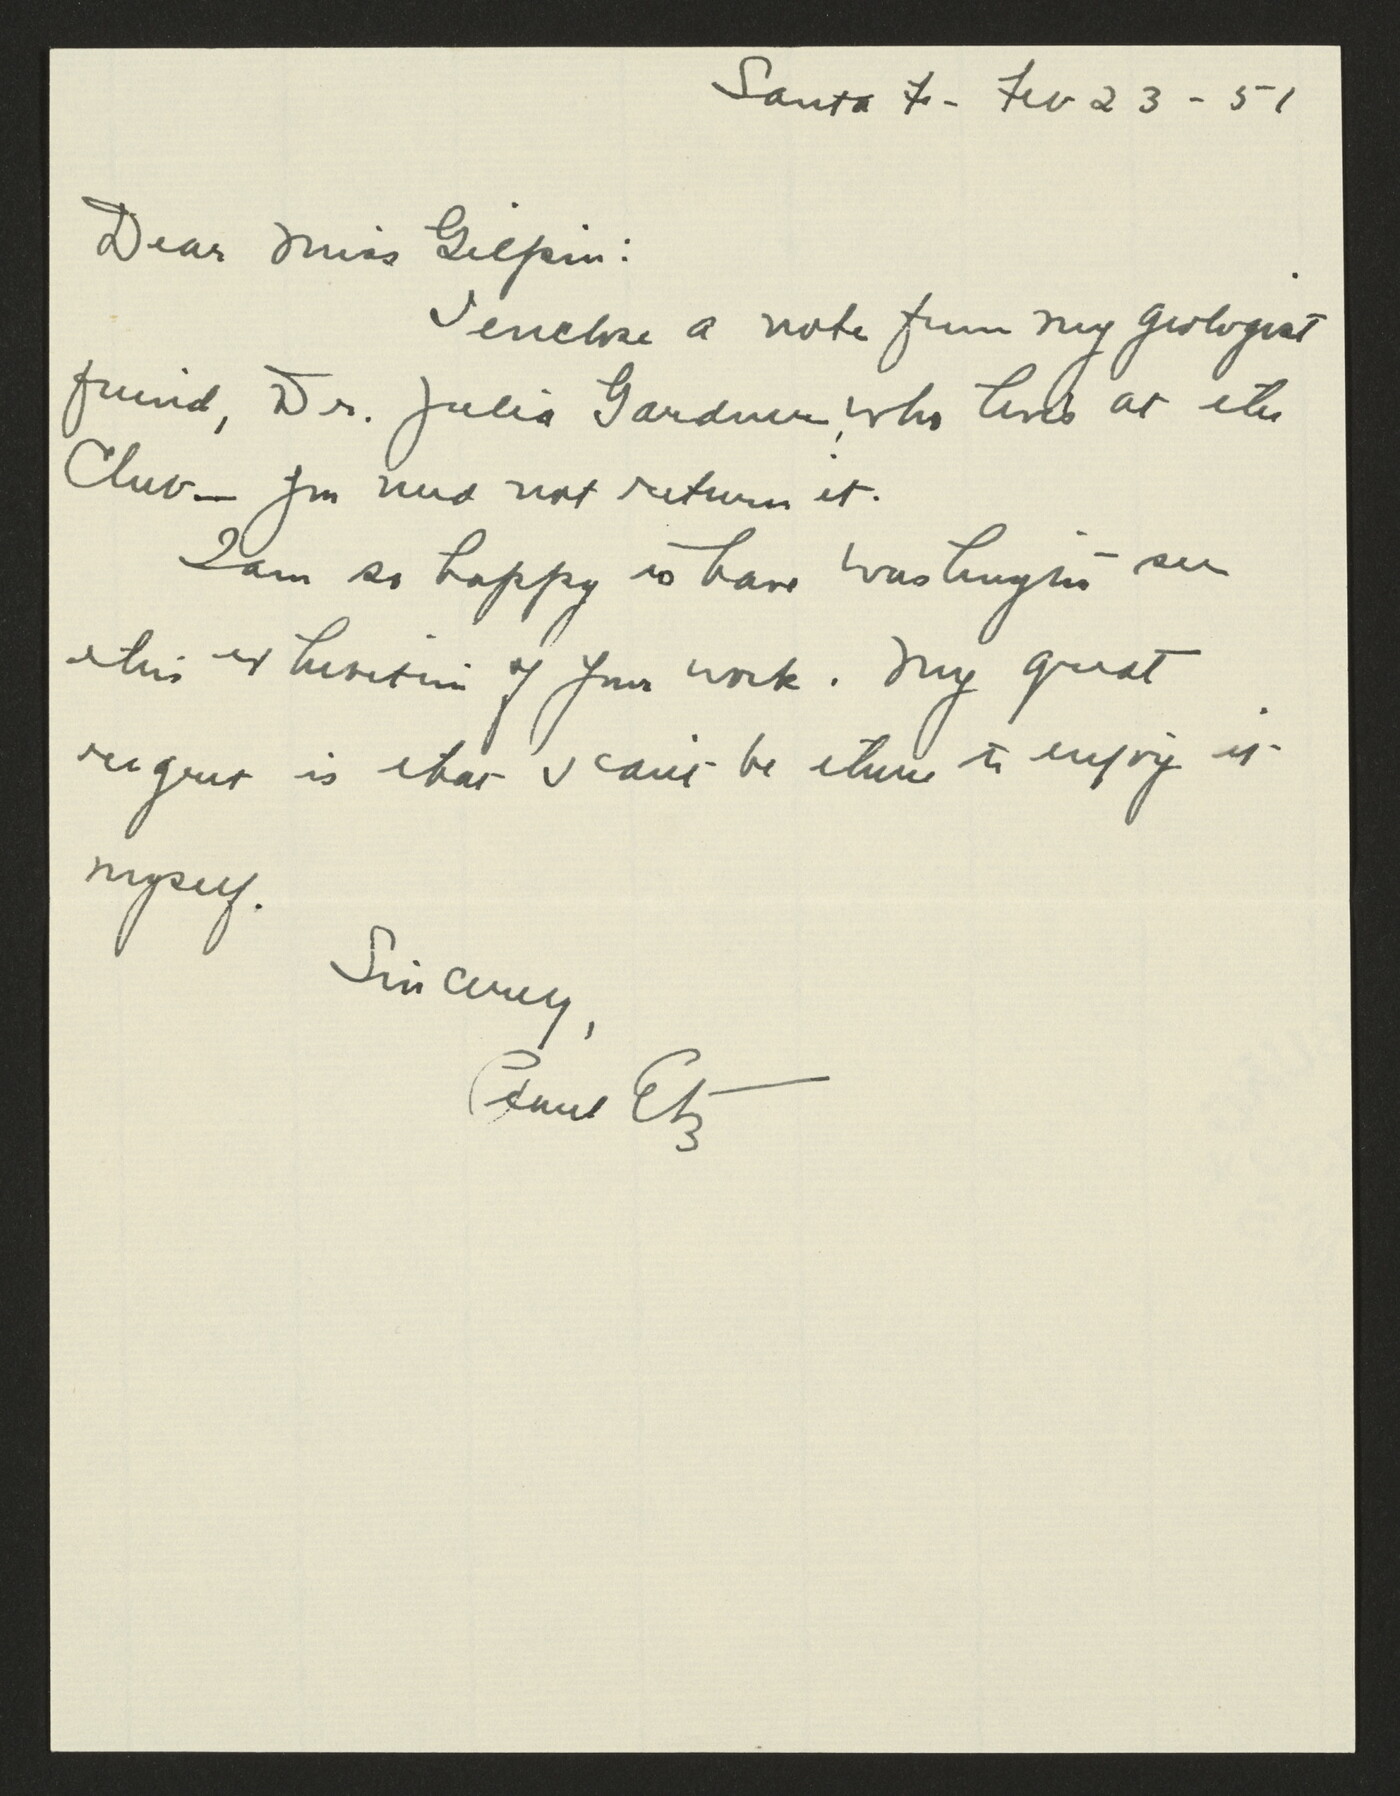 Santa Fe - Feb 23 - 51
Dear Miss Gilpin:
I enclose a note from my geologist
friend, Dr. Julia Gardner, who lives at the
Club — You need not return it.
I am so happy to have Washington see
this exhibition of your work. My great
regret is that I can't be there to enjoy it
myself.
Sincerely,
Etz